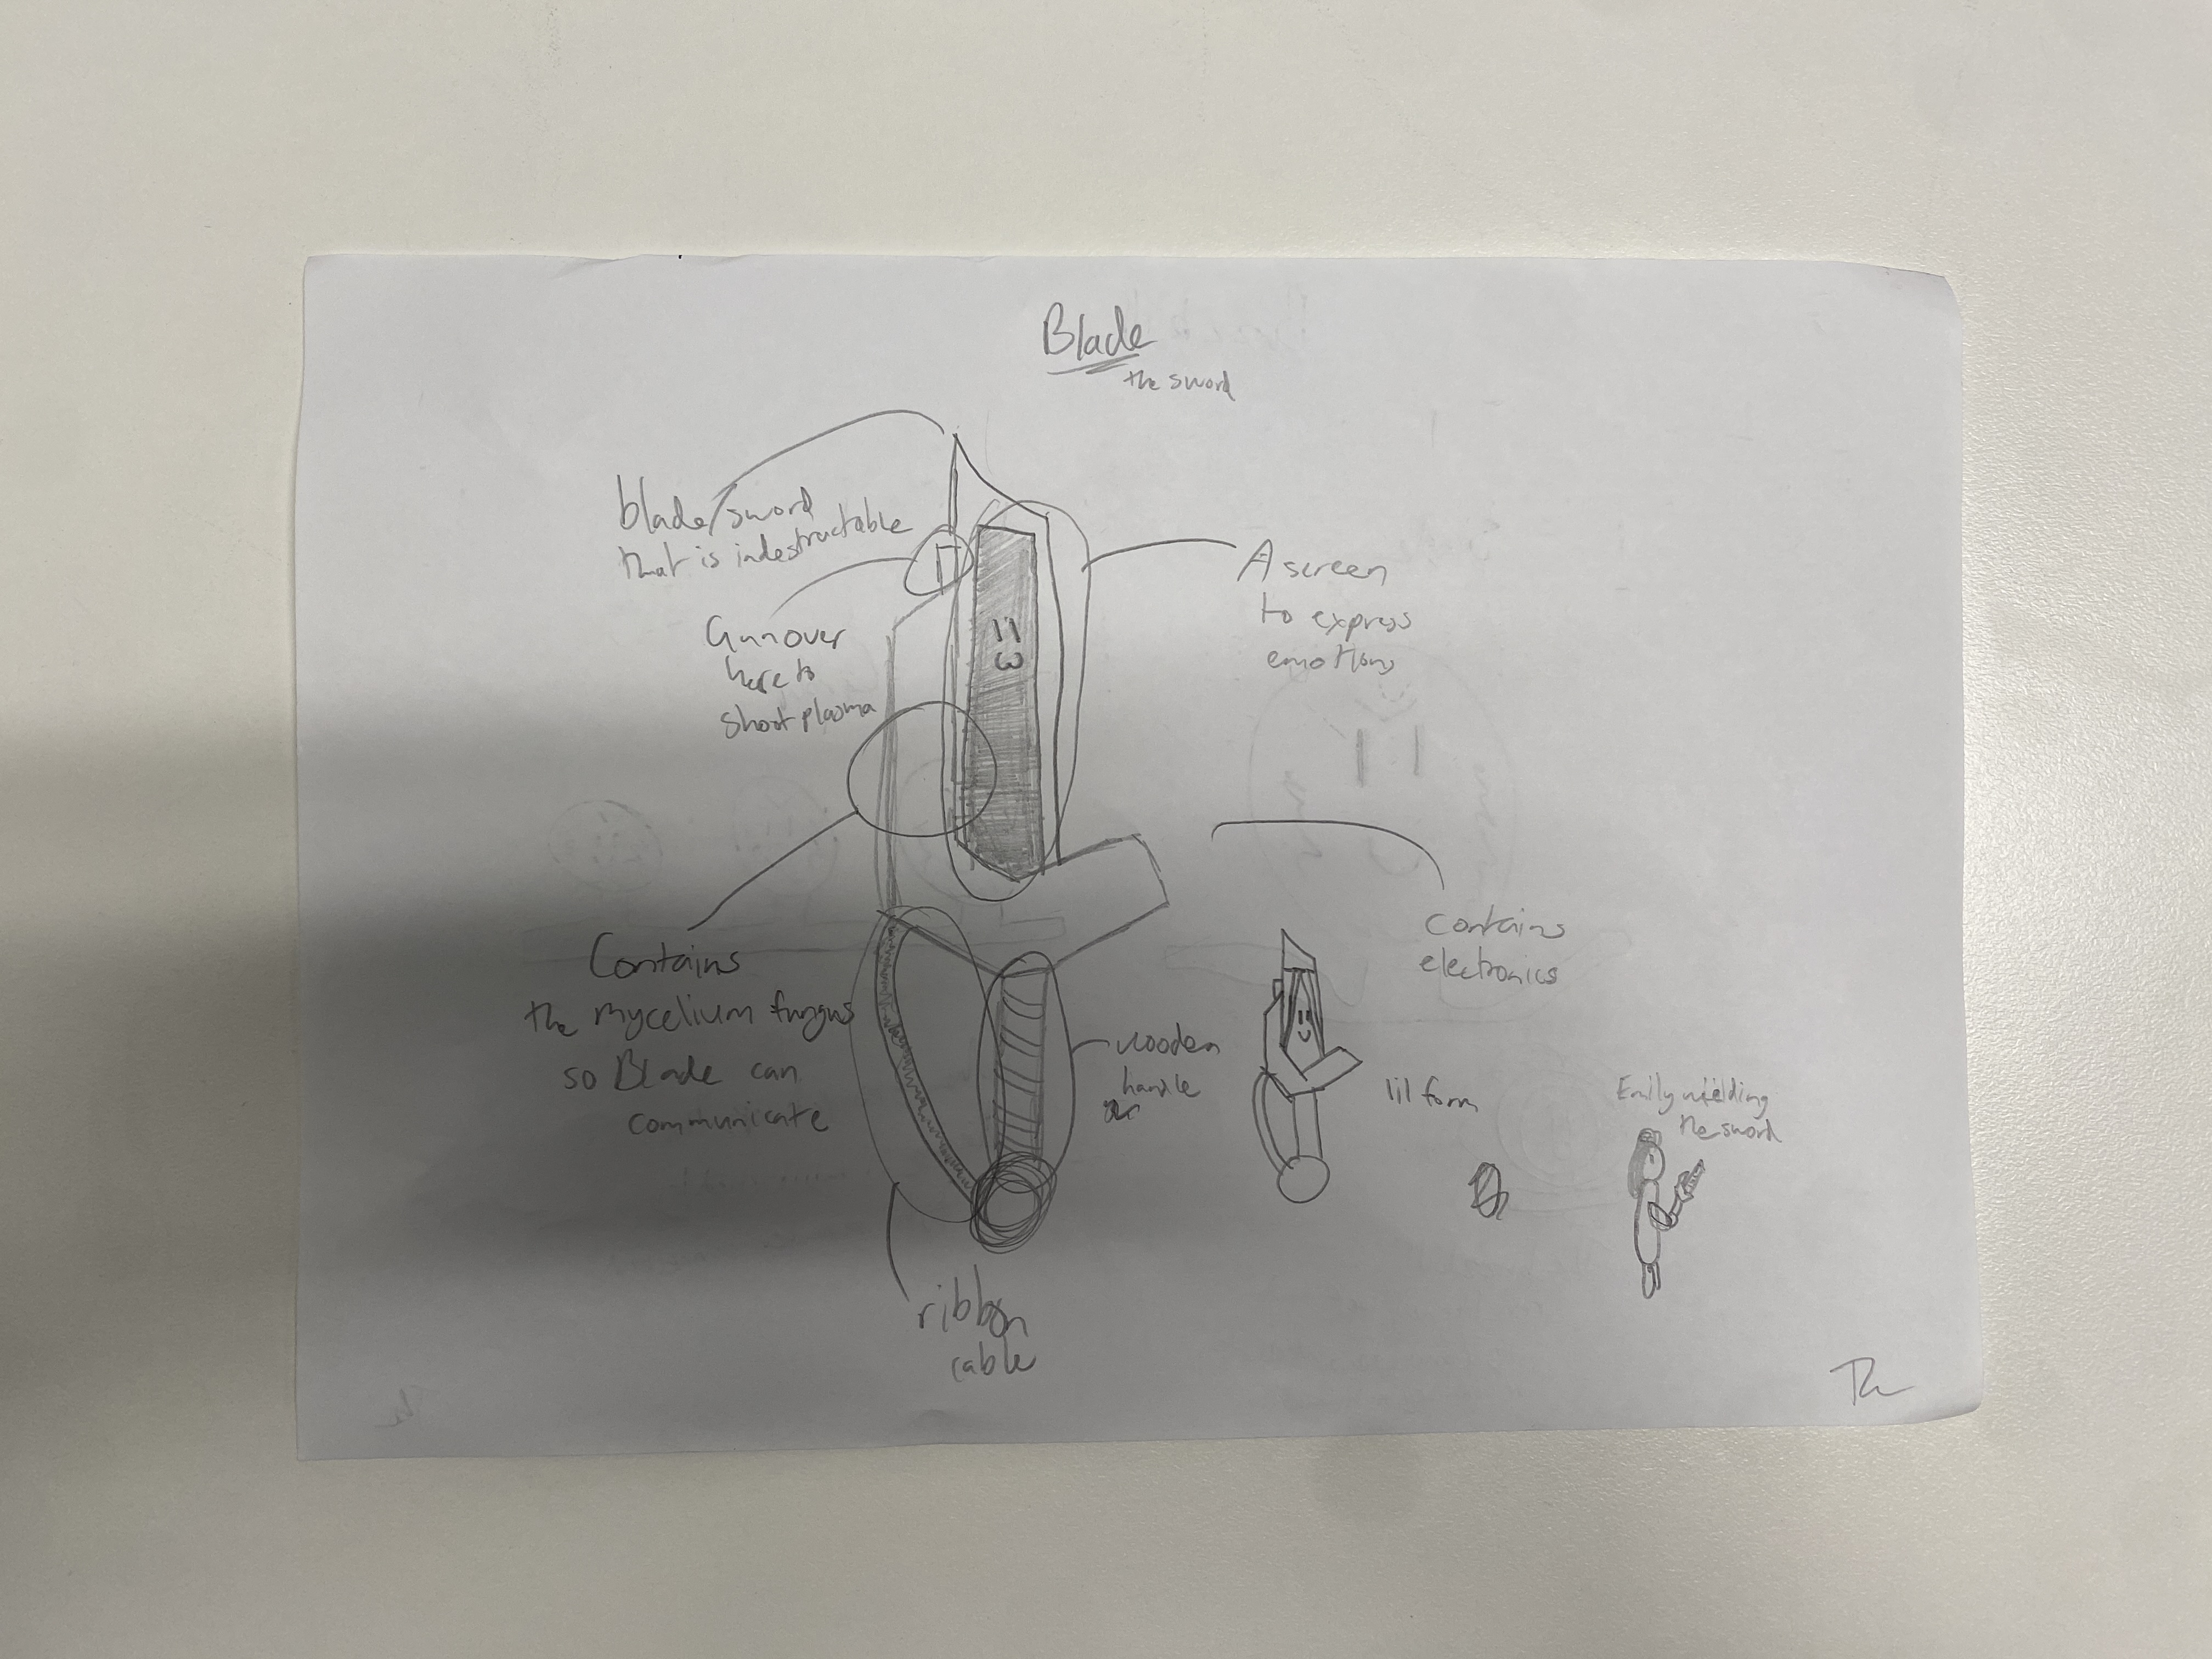 Blade
the sword
blade/sword
that is indestructable
Gun over
here to
shoot plasma
A screen
to express
emotions
Contains
the mycelium fungus
so Blade can
communicate
contains
electronics
wooden
handle
lil form
Emily wielding
the sword
ribbon
cable